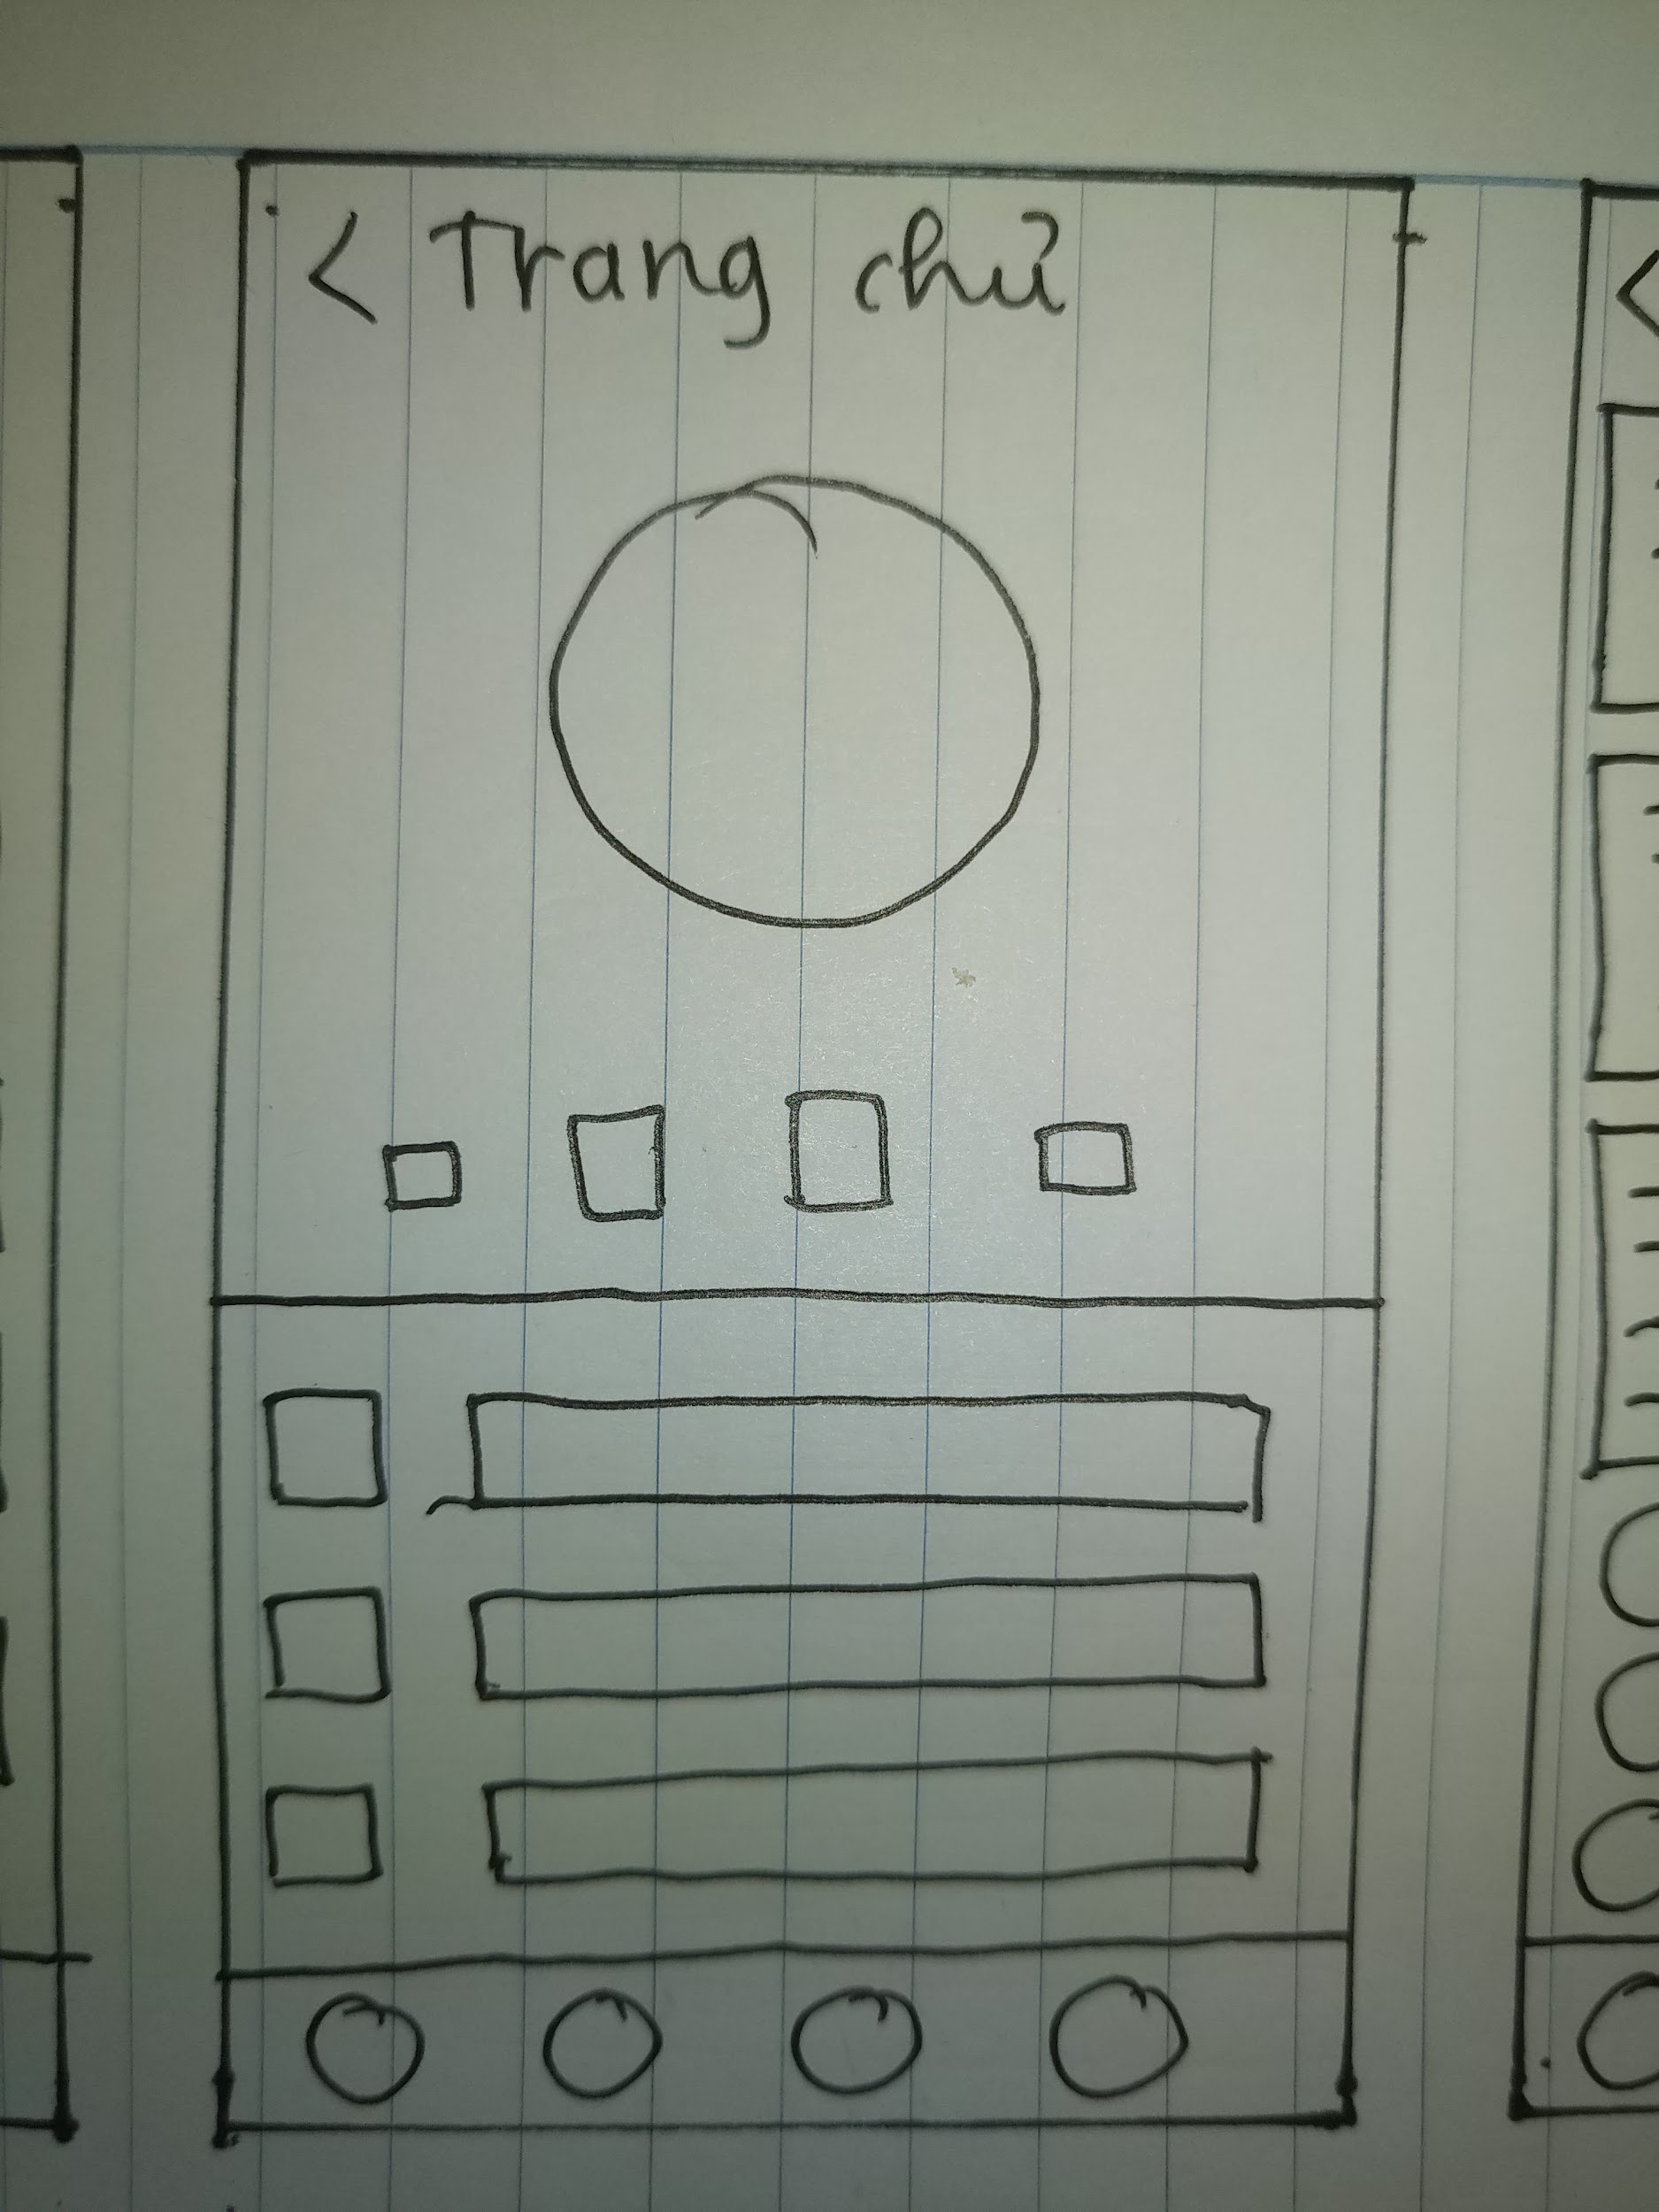 < Trang chủ